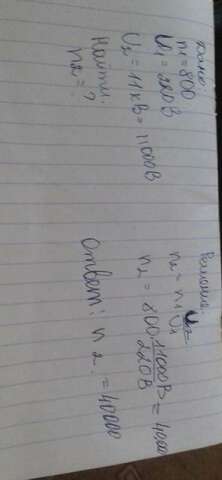 Дано:
n₁ = 800
U₁ = 220 В
U₂ = 11 кВ = 11000 В
Найти:
n₂ = ?
Решение:
n₂ = n₁ U₂/U₁
n₂ = 800 11000 В/220 В = 4000
Ответ: n₂ = 40000